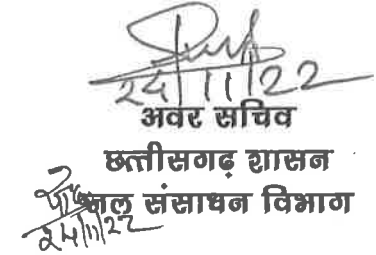 24/11/22
अवर सचिव
छत्तीसगढ़ शासन
जल संसाधन विभाग
24/11/22